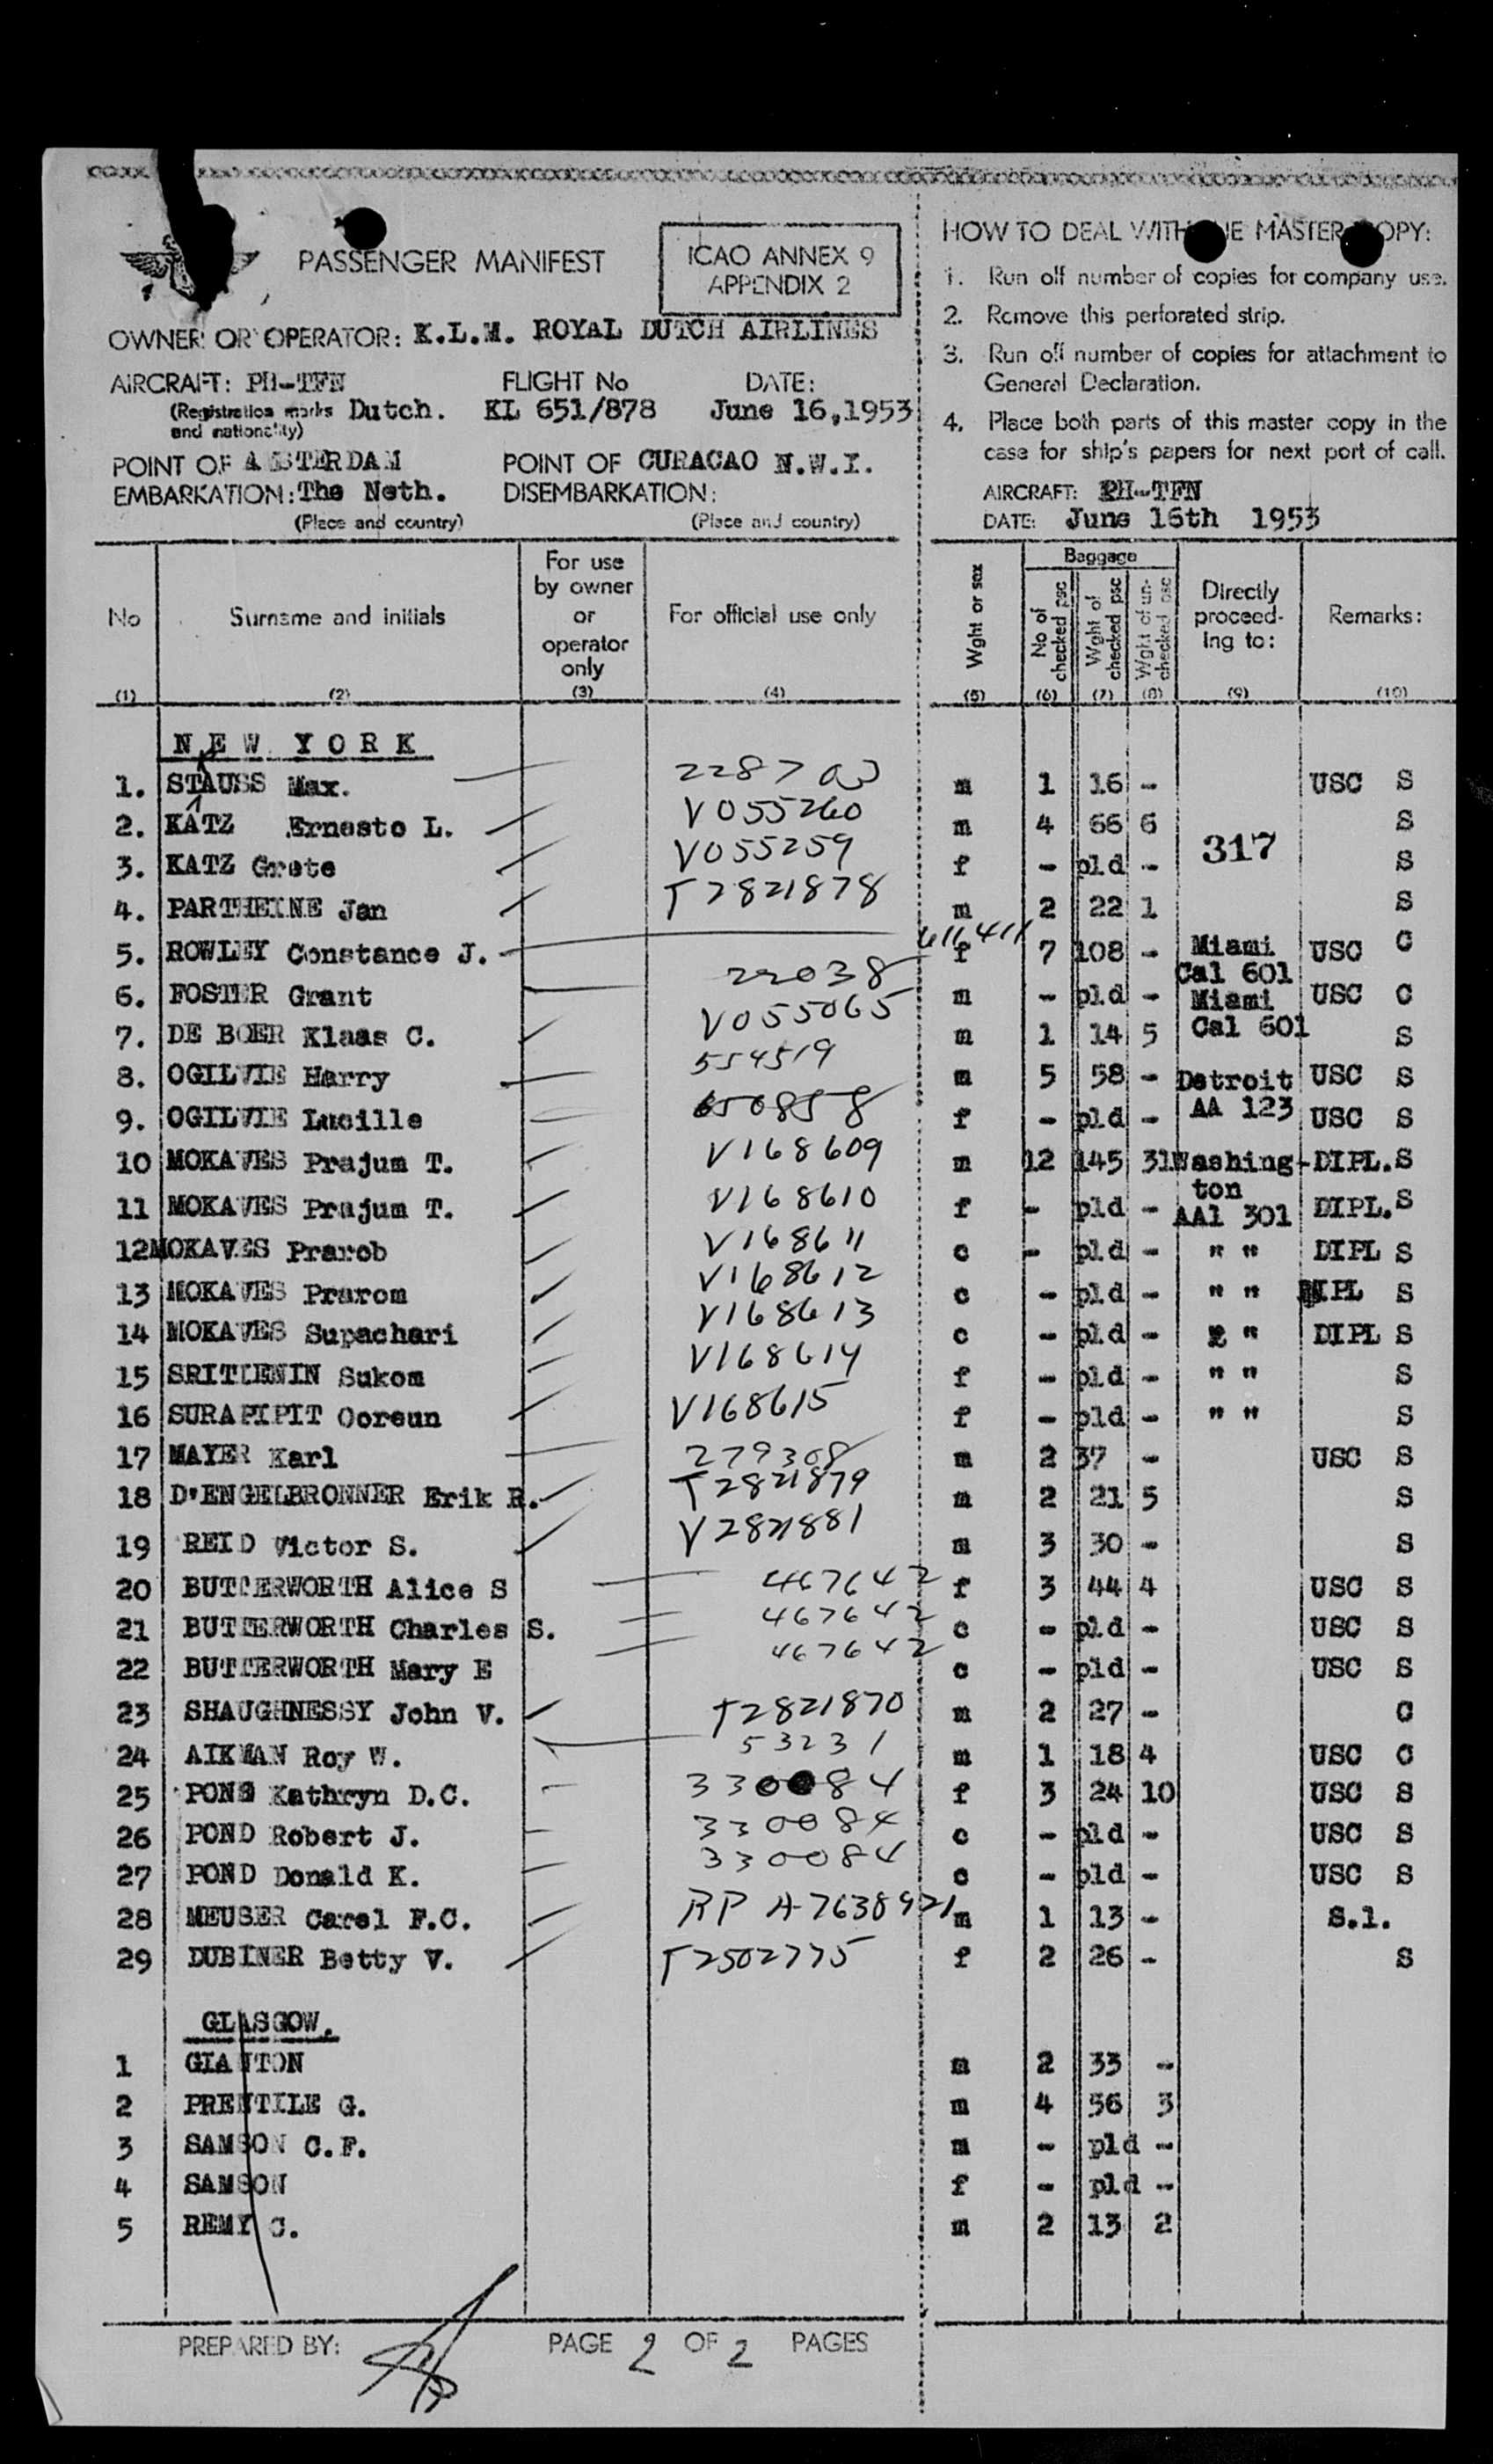 PASSENGER MANIFEST
ICAO ANNEX 9
APPENDIX 2
OWNER OR OPERATOR: K.L.M. ROYAL DUTCH AIRLINES
AIRCRAFT: PH-TFN FLIGHT No DATE:
(Registration marks and nationality) Dutch. KL 651/878 June 16,1953
POINT OF EMBARKATION: AMSTERDAM The Neth. POINT OF DISEMBARKATION: CURACAO N.W.I.
(Place and country) (Place and country)
HOW TO DEAL WITH MASTER OPY:
1. Run off number of copies for company use.
2. Remove this perforated strip.
3. Run off number of copies for attachment to
General Declaration.
4. Place both parts of this master copy in the
case for ship's papers for next port of call.
AIRCRAFT: PH-TFN
DATE: June 16th 1953
No Surname and initials For use by owner or operator only For official use only Wght or sex Baggage No of checked psc Wght of checked psc Wght of un-checked psc Directly proceed-ing to: Remarks:
(1) (2) (3) (4) (5) (6) (7) (8) (9) (10)
NEW YORK
1. STAUSS Max. 228703 m 1 16 - USC S
2. KATZ Ernesto L. V055260 m 4 66 6 S
3. KATZ Grete V055259 f - pld - 317 S
4. PARTHEINE Jan T2821878 m 2 22 1 S
5. ROWLEY Constance J. 616411 f 7 108 - Miami USC C
Cal 601
6. FOSTER Grant 22038 m - pld - Miami USC C
7. DE BOER Klaas C. V055065 m 1 14 5 Cal 601 S
8. OGILVIE Harry 554519 m 5 58 - Detroit USC S
9. OGILVIE Lucille 650858 f - pld - AA 123 USC S
10 MOKAVES Prajum T. V168609 m 12 145 31 Washing- DIPL. S
ton
11 MOKAVES Prajum T. V168610 f - pld - AAl 301 DIPL. S
12 MOKAVES Prarob V168611 c - pld - " " DIPL S
13 MOKAVES Prarom V168612 c - pld - " " DIPL S
14 MOKAVES Supachari V168613 c - pld - " " DIPL S
15 SRITIENIN Sukom V168614 f - pld - " " S
16 SURAPIPIT Ooreun V168615 f - pld - " " S
17 MAYER Karl 279308 m 2 37 - USC S
18 D'ENGELBRONNER Erik R. T2821879 m 2 21 5 S
19 REID Victor S. V2821881 m 3 30 - S
20 BUTTERWORTH Alice S 467642 f 3 44 4 USC S
21 BUTTERWORTH Charles S. 467642 c - pld - USC S
22 BUTTERWORTH Mary E 467642 c - pld - USC S
23 SHAUGHNESSY John V. T2821870 m 2 27 - C
24 AIKMAN Roy W. 53231 m 1 18 4 USC C
25 POND Kathryn D.C. 330084 f 3 24 10 USC S
26 POND Robert J. 330084 c - pld - USC S
27 POND Donald K. 330084 c - pld - USC S
28 MEUSER Carel F.C. RP A-7638921 m 1 13 - S.l.
29 DUBINER Betty V. T2502775 f 2 26 - S
GLASGOW.
1 GIANTON m 2 33 -
2 PRENTILE G. m 4 56 3
3 SAMSON C.F. m - pld -
4 SAMSON f - pld -
5 REMY C. m 2 13 2
PREPARED BY: PAGE 2 OF 2 PAGES